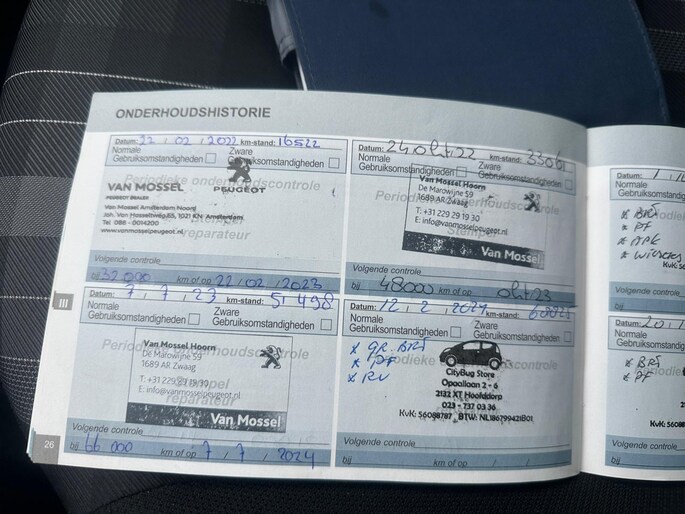 ONDERHOUDSHISTORIE
Datum: 22 / 02 / 2022 km-stand: 16522
Normale Gebruiksomstandigheden
Zware Gebruiksomstandigheden
Periodieke onderhoudscontrole
VAN MOSSEL
PEUGEOT DEALER
PEUGEOT
Van Mossel Amsterdam Noord
Joh. Van Hasseltweg 55, 1021 KN Amsterdam
Tel 088 - 0014200
www.vanmosselpeugeot.nl
Stempel
reparateur
Volgende controle
bij 32000 km of op 22 / 02 / 2023
Datum: 24 okt 22 km-stand:
Normale Gebruiksomstandigheden
Zware Gebruiksomstandigheden
Periodieke onderhoudscontrole
Van Mossel Hoorn
De Marowijne 59
1689 AR Zwaag
T: +31 229 29 19 30
E: info@vanmosselpeugeot.nl
Van Mossel
Volgende controle
bij 48000 km of op okt 23
III
Datum: 7 / 7 / 23 km-stand: 51498
Normale Gebruiksomstandigheden
Zware Gebruiksomstandigheden
Periodieke onderhoudscontrole
Van Mossel Hoorn
De Marowijne 59
1689 AR Zwaag
Stempel
T: +31 229 29 19 30
E: info@vanmosselpeugeot.nl
Van Mossel
Volgende controle
bij 66 000 km of op 7 / 7 / 2024
Datum: 12 / 2 / 2024 km-stand:
Normale Gebruiksomstandigheden
Zware Gebruiksomstandigheden
Periodieke onderhoudscontrole
* GR. BRT
* PF
* RV
CityBug Store
Opaallaan 2 - 6
2132 XT Hoofddorp
023 - 737 03 36
KvK: 56088787 BTW: NL186799421B01
Volgende controle
bij km of op / /
26
Datum: 1 / 10
Normale
Gebruiksomst
* BRT
* PF
* APK
KvK:
Volgende controle
bij
Datum: 20 / 1
Normale
Gebruiksomst
* BRT
* PF
KvK: 5608
Volgende controle
bij